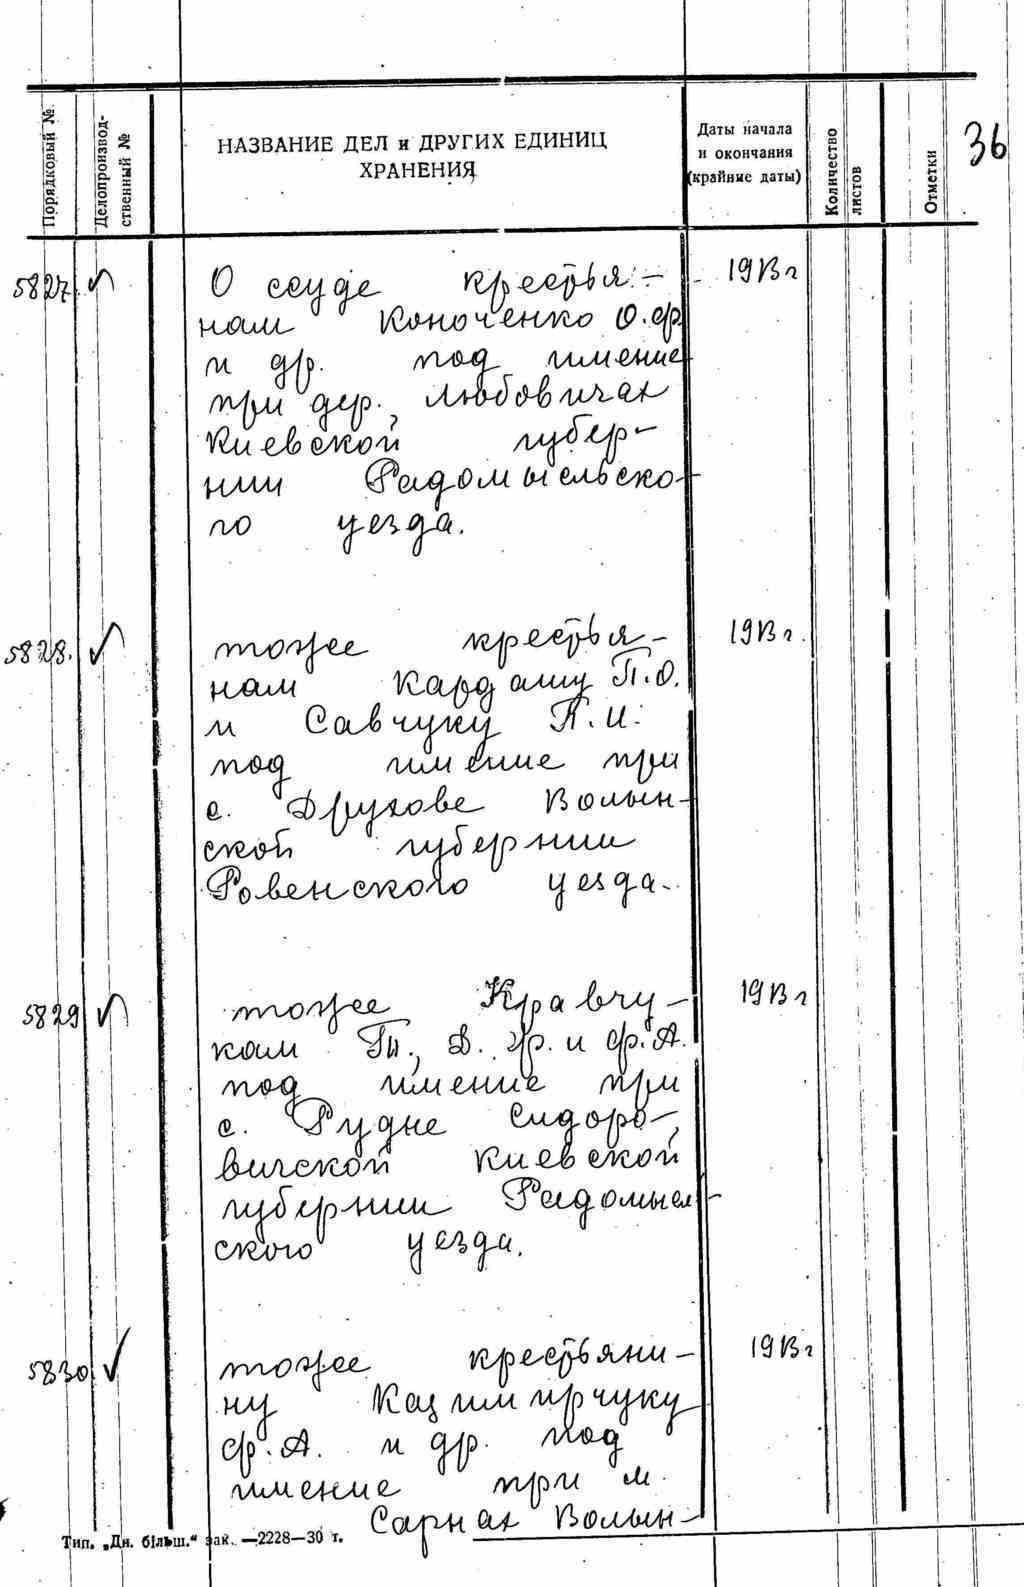 36
Порядковый №
Делопроизвод-
ственный №
НАЗВАНИЕ ДЕЛ и ДРУГИХ ЕДИНИЦ
ХРАНЕНИЯ
Даты начала
и окончания
(крайние даты)
Количество
листов
Отметки
5827. О ссуде крестья- 1913 г
нам Коноченко О.Ф
и др. под имение
при дер. Любовичах
Киевской губер-
нии Радомысльско-
го уезда.
5828. тоже крестья- 1913 г.
нам Кардашу П.О.
и Савчуку П.И.
под имение при
с. Друхове Волын-
ской губернии
Ровенского уезда.
5829 тоже Кравчу- 1913 г
кам П., Д. Гр. и Ф.А.
под имение при
с. Рудне Сидоро-
вичской Киевской
губернии Радомысл-
ского уезда.
5830 тоже крестьяни- 1913 г
ну Казимирчуку
Ф.А. и др. под
имение при м.
Сарнах Волын-
Тип. „Дн. більш.“ зак. —2228—30 т.